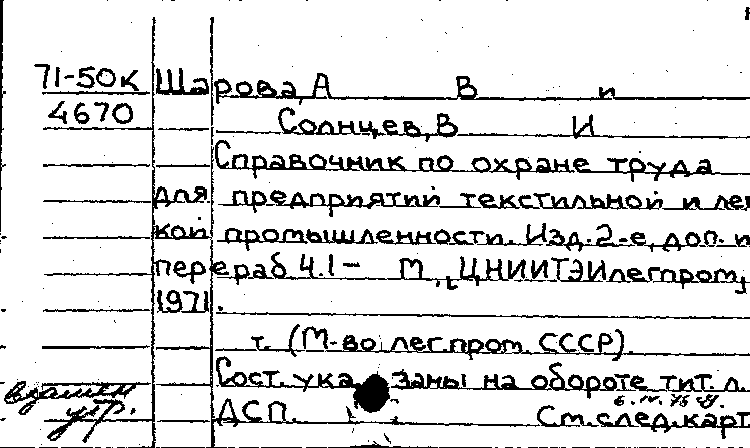 71-50к Шарова, А В и
4670 Солнцев, В И
Справочник по охране труда
для предприятий текстильной и лег
кой промышленности. Изд. 2-е, доп. и
перераб Ч.1- М., ЦНИИТЭИлегпром,
1971.
т. (М-во лег.пром. СССР).
Сост. указаны на обороте тит. л.
взамен
утр. ДСП. См. след. карт